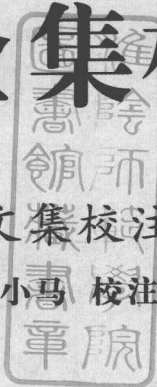 集
文集校注
小马 校注
淮陰師範學院
圖書館藏書章